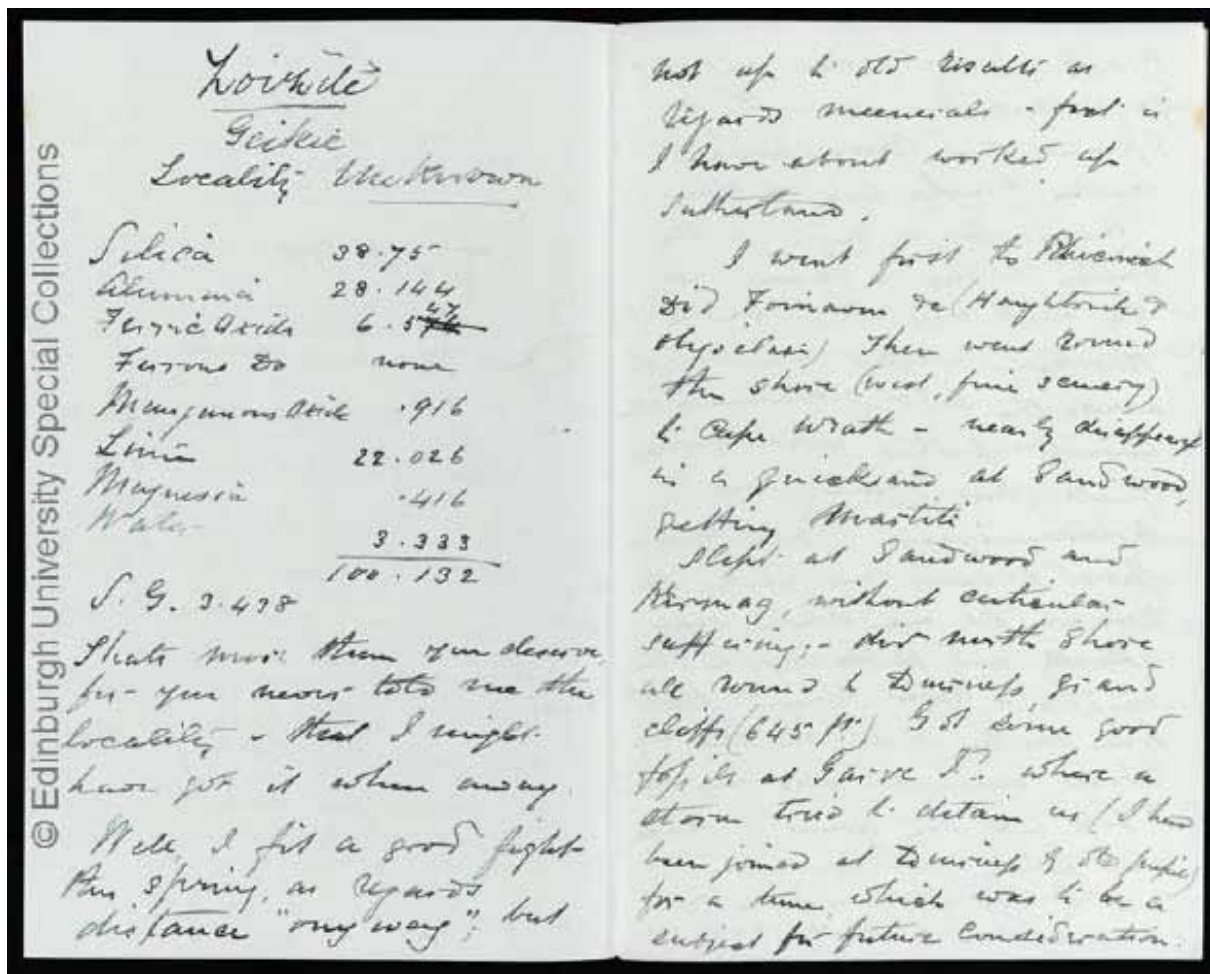 Zoisite
Geikie
Locality Unknown
Silica 38.75
Alumina 28.144
Ferric Oxide 6.547
Ferrous Do none
Manganous Oxide .916
Lime 22.026
Magnesia .416
Water
3.333
100.132
S. G. 3.438
Thats more than you deserve
for you never told me the
locality - that I might
have got it when away.
Well, I fit a good fight
this spring, as regards
distance "ony way"; but
not up to old results as
regards meenerals - fact is
I have about worked up
Sutherland.
I went first to Rhiconich
Did Foinaven &c (Haughtonite &
oligoclase) Then went round
the shore (west, fine scenery)
to Cape Wrath - nearly disappeared
in a quicksand at Sandwood,
getting Martite
Slept at Sandwood and
without
suffering, - did north shore
all round to Durness grand
cliffs (645 ft.) Got some good
fossils at Garve I^d. where a
storm tried to detain us (I had
been joined at Durness by
for a time, which was to be a
subject for future Consideration.
© Edinburgh University Special Collections